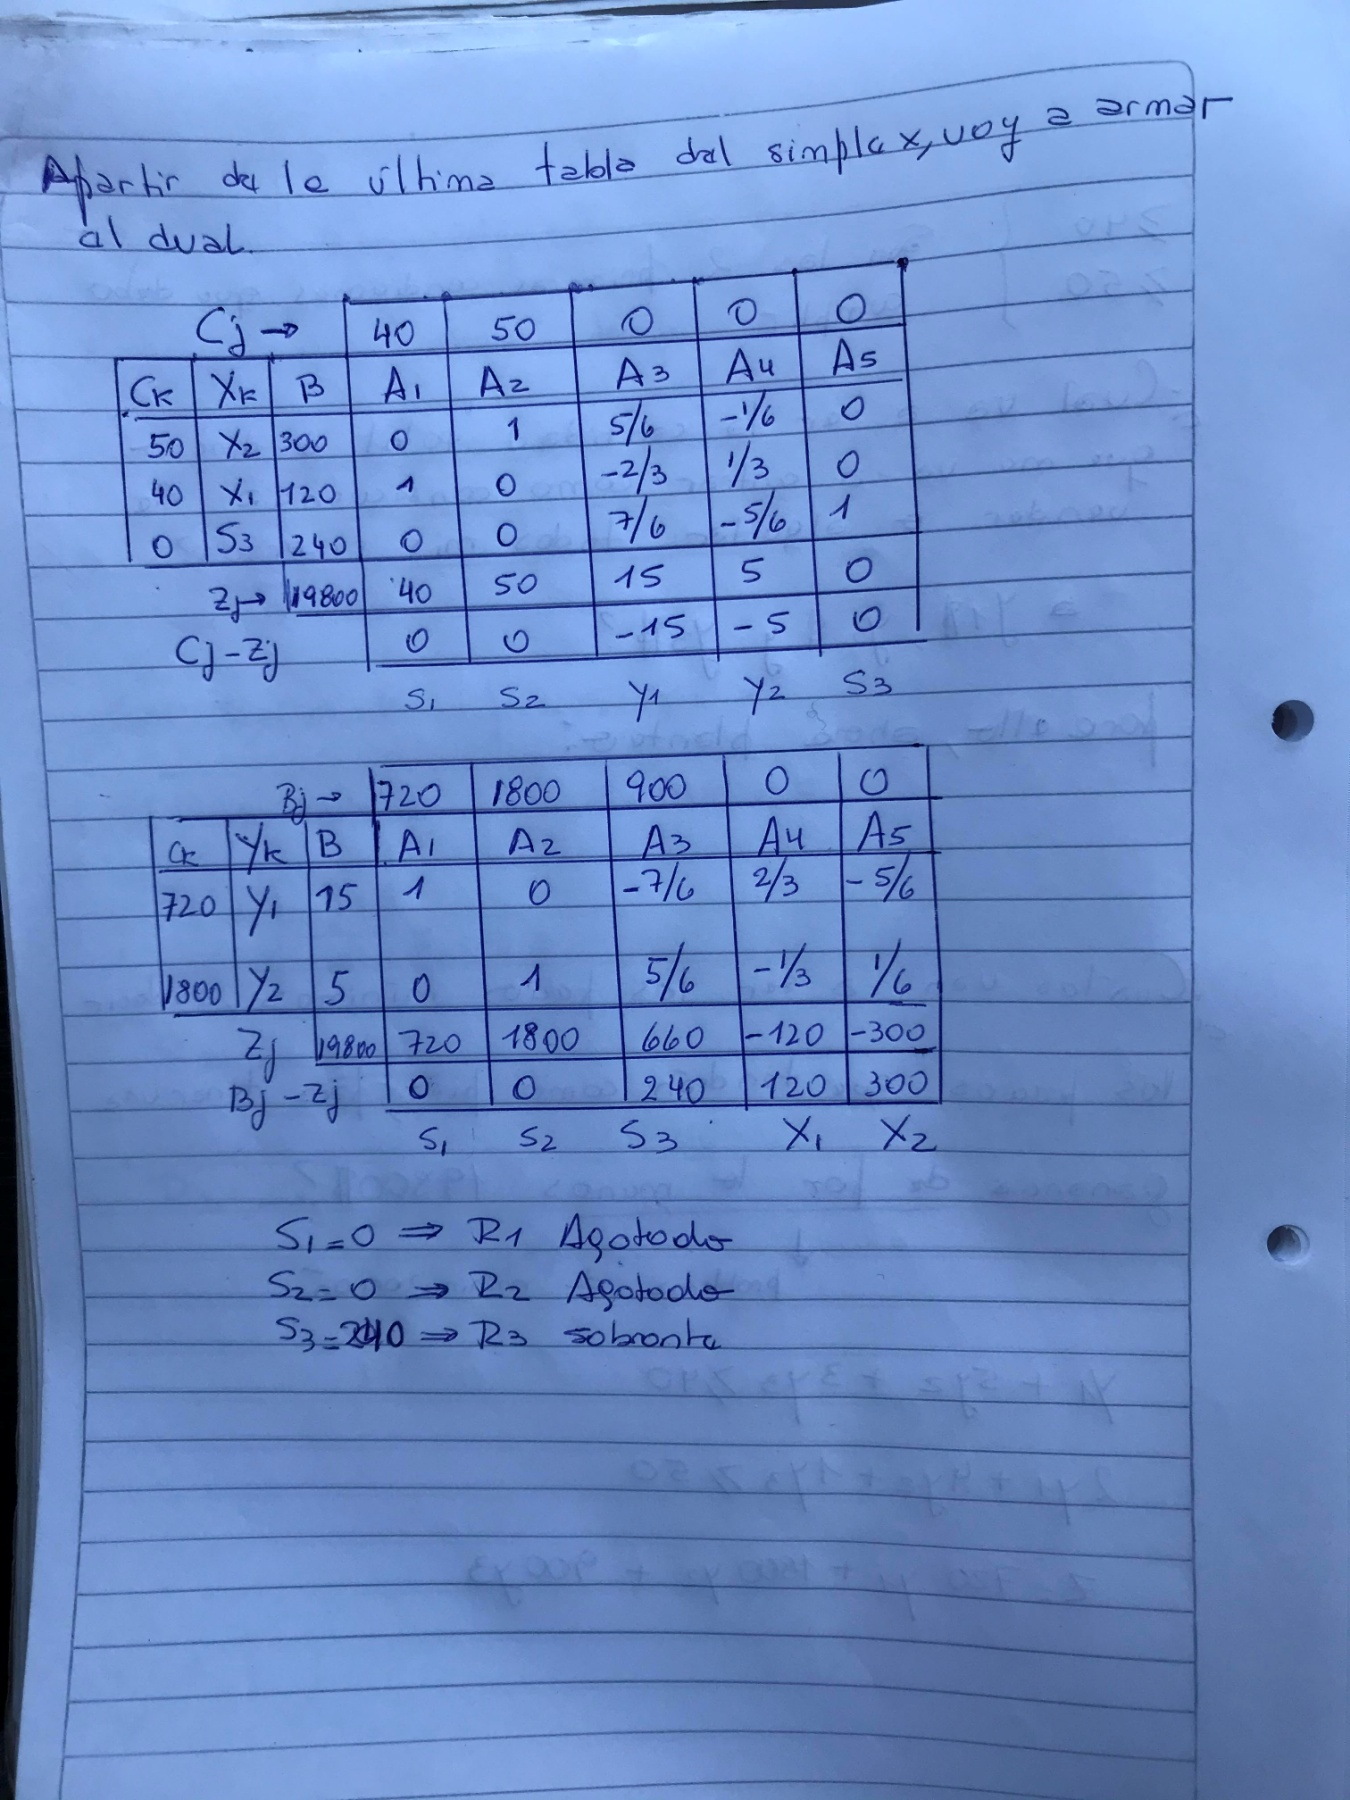 Apartir de la última tabla del simplex, voy a armar
al dual.
Cj → 40 50 0 0 0
Ck Xk B A1 A2 A3 A4 A5
50 X2 300 0 1 5/6 -1/6 0
40 X1 120 1 0 -2/3 1/3 0
0 S3 240 0 0 7/6 -5/6 1
Zj→ 19800 40 50 15 5 0
Cj-Zj 0 0 -15 -5 0
S1 S2 Y1 Y2 S3
Bj → 720 1800 900 0 0
Ck Yk B A1 A2 A3 A4 A5
720 Y1 15 1 0 -7/6 2/3 -5/6
1800 Y2 5 0 1 5/6 -1/3 1/6
Zj 19800 720 1800 660 -120 -300
Bj-Zj 0 0 240 120 300
S1 S2 S3 X1 X2
S1=0 ⇒ R1 Agotado
S2=0 ⇒ R2 Agotado
S3=240 ⇒ R3 sobrante